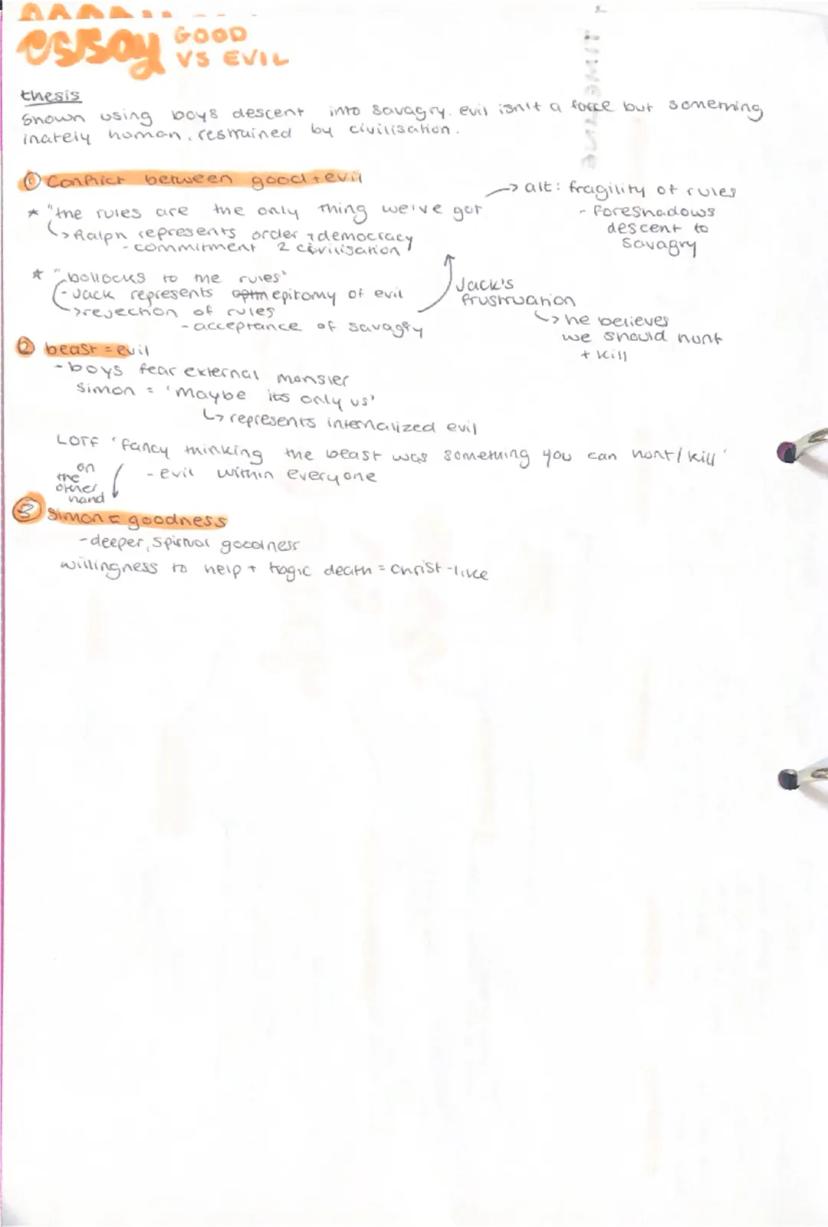 essay GOOD
VS EVIL
thesis
Shown using boys descent into savagry. evil isn't a force but something
inately human. restrained by civilisation.
① Conflict between good + evil
→ alt: fragility of rules
- foreshadows
descent to
savagry
* "the rules are the only thing we've got
↳ Ralph represents order + democracy
- commitment 2 civilisation
* "bollocks to the rules"
- Jack represents epitomy of evil
→ rejection of rules
- acceptance of savagry
Jack's
frustruation
↳ he believes
we should hunt
+ kill
② beast = evil
- boys fear external monster
simon = 'maybe its only us'
↳ represents internalized evil
LOTF 'fancy thinking the beast was something you can hunt/kill'
- evil within everyone
on
the
other
hand
③ Simon = goodness
- deeper, spirtual goodness
willingness to help + tragic death = christ-like